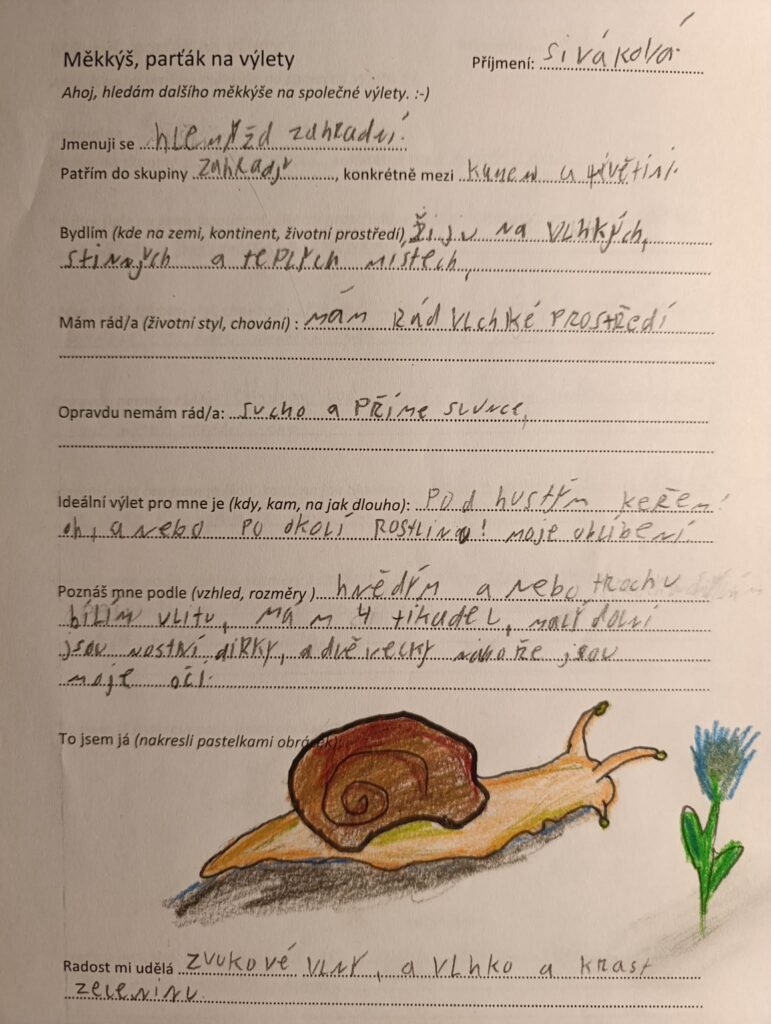 Měkkýš, parťák na výlety
Příjmení: Siváková
Ahoj, hledám dalšího měkkýše na společné výlety. :-)
Jmenuji se hlemýžd zahradní.
Patřím do skupiny, konkrétně mezi
Bydlím (kde na zemi, kontinent, životní prostředí) Žiju na vlhkých,
stinných a teplých místech,
Mám rád/a (životní styl, chování) : mám rád vlchké prostředí
Opravdu nemám rád/a: sucho a příme slunce,
Ideální výlet pro mne je (kdy, kam, na jak dlouho): pod hustým keřem!
a nebo po okolí rostlin! moje
Poznáš mne podle (vzhled, rozměry ) hnědým a nebo trochu
bílím ulitu, mám 4 tikadel, malí dolní
jsou nostní dírky, a dvě necky nahoře jsou
moje oči.
To jsem já (nakresli pastelkami obrázek):
Radost mi udělá zvukové vlny, a vlhko a krast
zeleninu.